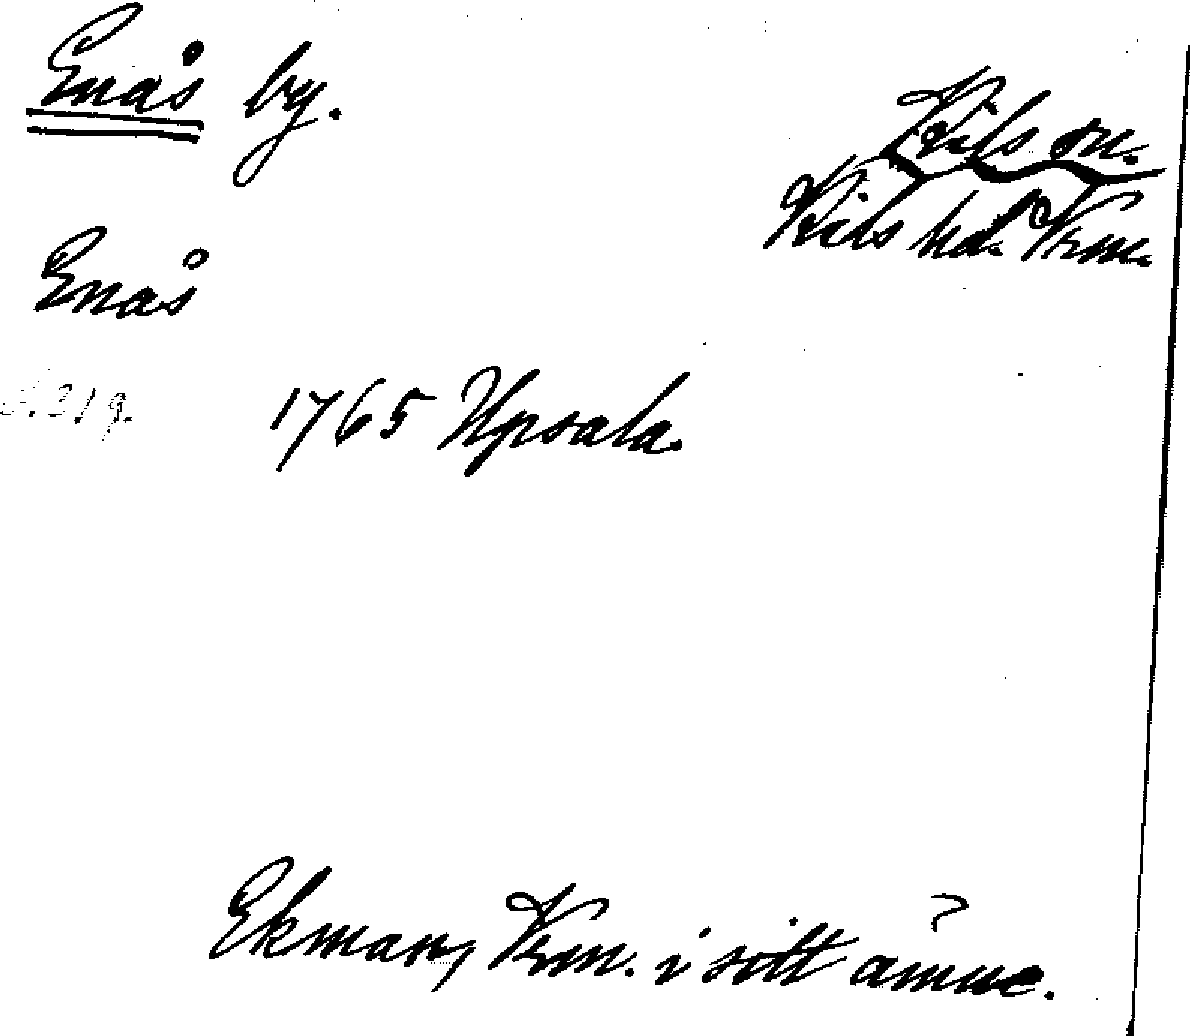 Enås by.
Kils sn.
Kils hd. Vrm.
Enås
s. 219. 1765 Upsala.
Ekman, Vrm. i sitt ämne.